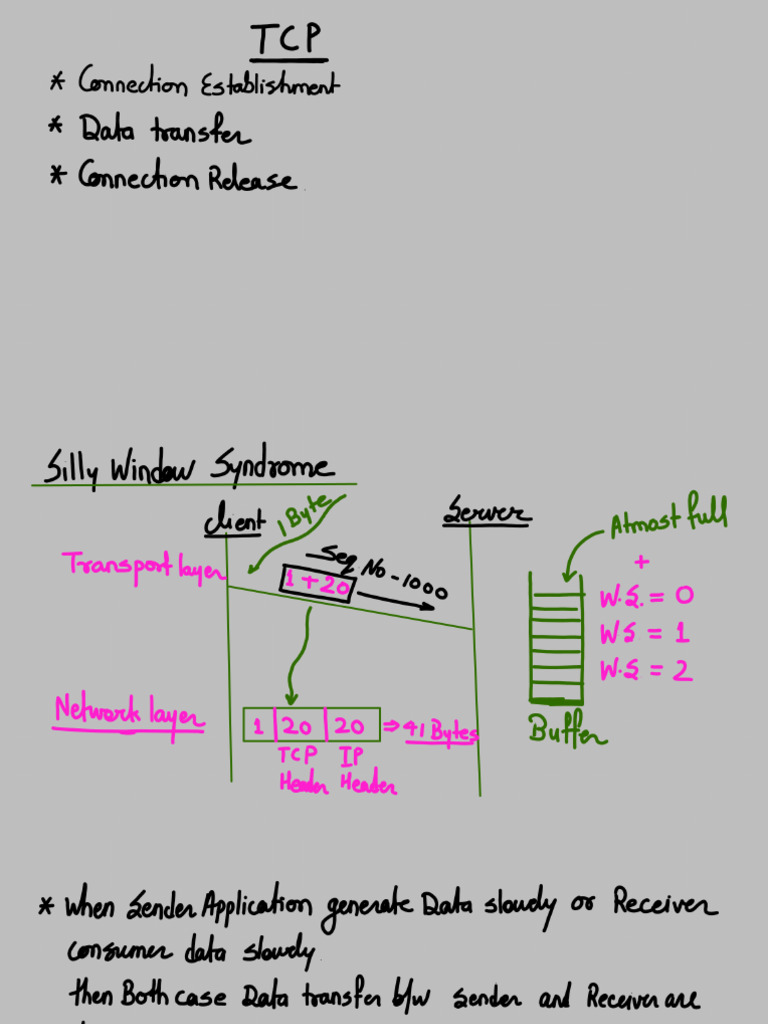 TCP
* Connection Establishment
* Data transfer
* Connection Release
Silly Window Syndrome
Client
1 Byte
Server
Atmost full
Transport layer
Seq No - 1000
1 + 20
+
W.S. = 0
WS = 1
W.S = 2
Network layer
1 | 20 | 20 ⇒ 41 Bytes
TCP Header
IP Header
Buffer
* When Sender Application generate Data slowly or Receiver
consumer data slowly
then Both case Data transfer b/w Sender and Receiver are